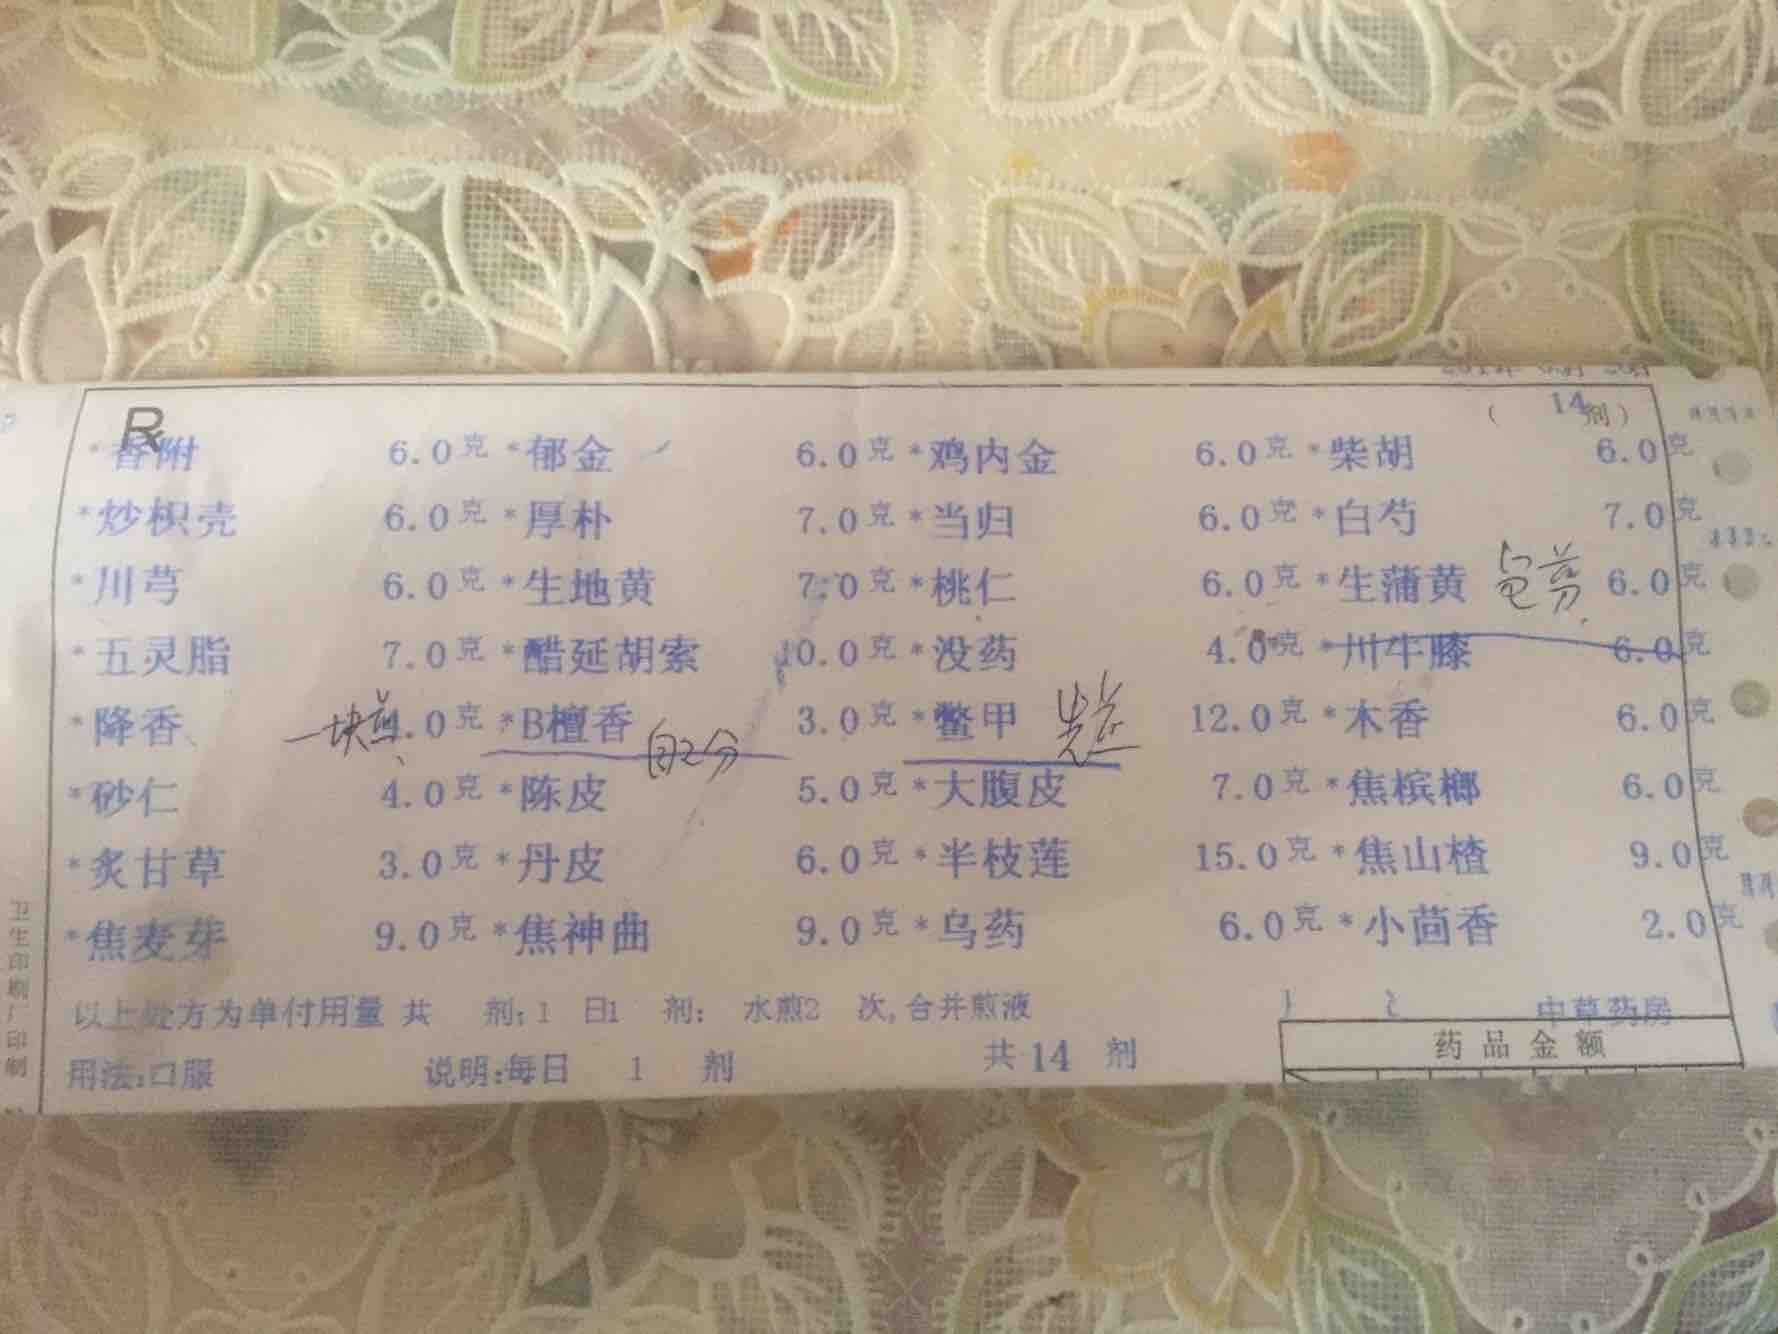 (14剂)
R
*香附 6.0克 *郁金 6.0克 *鸡内金 6.0克 *柴胡 6.0克
*炒枳壳 6.0克 *厚朴 7.0克 *当归 6.0克 *白芍 7.0克
*川芎 6.0克 *生地黄 7.0克 *桃仁 6.0克 *生蒲黄 包煎 6.0克
*五灵脂 7.0克 *醋延胡索 10.0克 *没药 4.0克 *川牛膝 6.0克
*降香 一块煎 .0克 *B檀香 自己分 3.0克 *鳖甲 先煎 12.0克 *木香 6.0克
*砂仁 4.0克 *陈皮 5.0克 *大腹皮 7.0克 *焦槟榔 6.0克
*炙甘草 3.0克 *丹皮 6.0克 *半枝莲 15.0克 *焦山楂 9.0克
*焦麦芽 9.0克 *焦神曲 9.0克 *乌药 6.0克 *小茴香 2.0克
以上处方为单付用量 共 剂;1 日1 剂: 水煎2 次,合并煎液 中草药房
用法:口服 说明:每日 1 剂 共14 剂
药品金额
卫生印刷厂印制